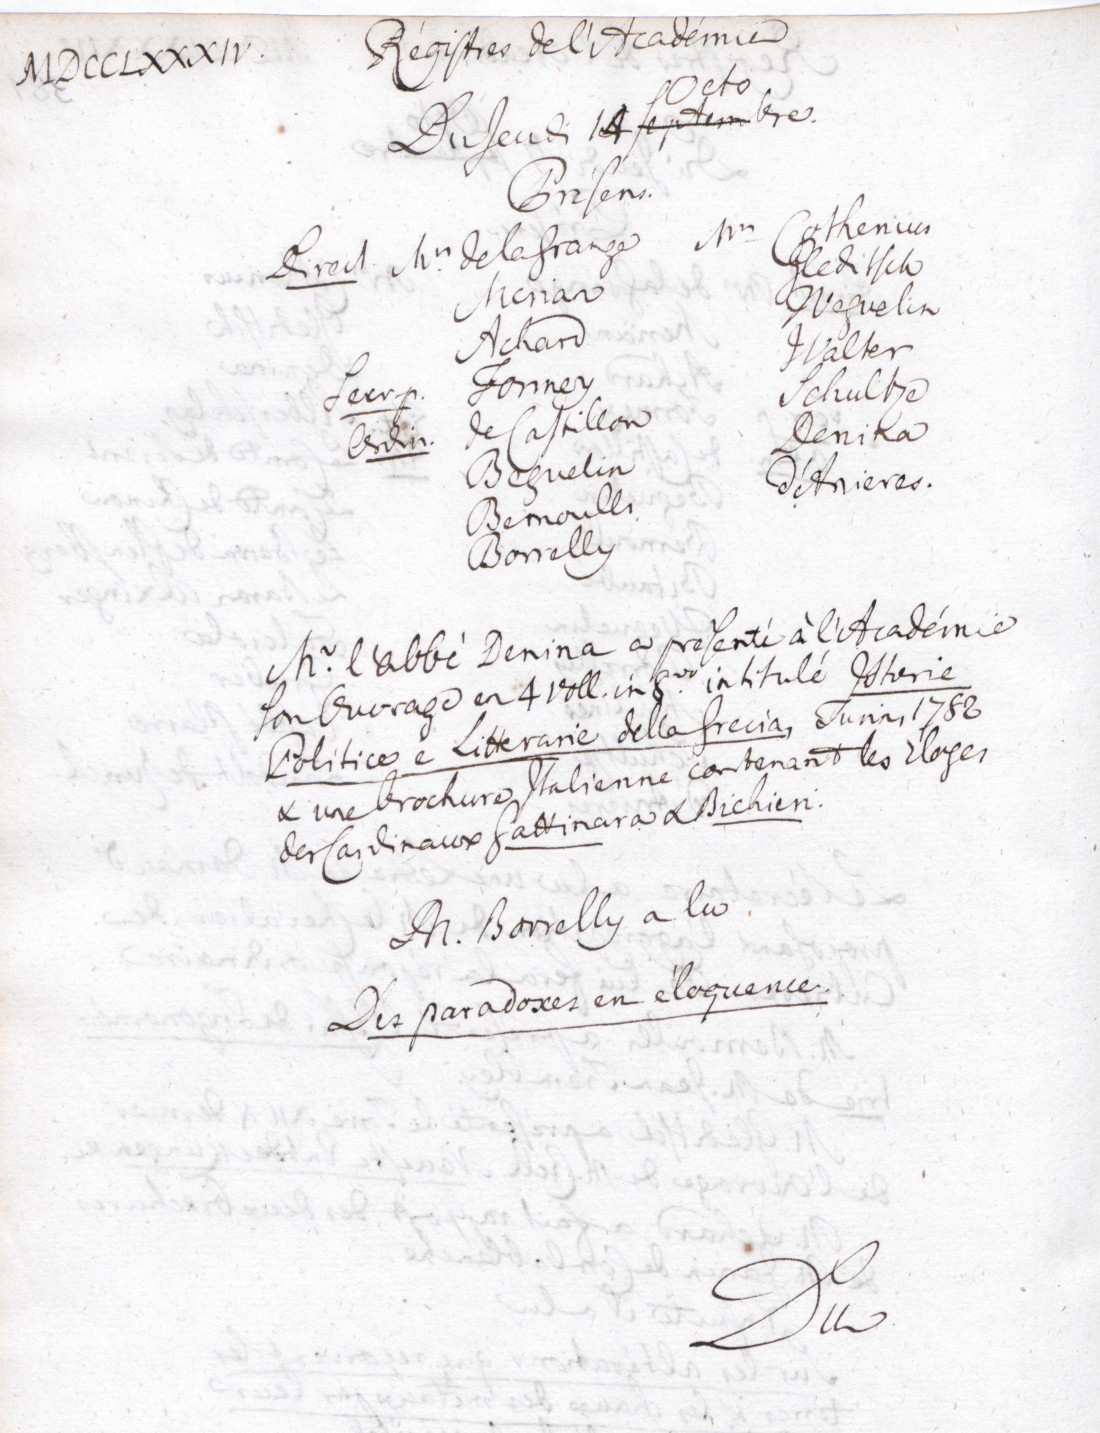 MDCCLXXXIV.
Régistres de l'Académie
Octo
Du Jeudi 14 septembre.
Présens.
Direct Mrs de la Grange
Merian
Achard
Secr. p. Formey
Ordin. de Castillon
Beguelin
Bernoulli
Borrelly
Mrs Cothenius
Gleditsch
Weguelin
Walter
Schultze
Denina
d'Anieres.
Mr. l'abbé Denina a présenté à l'Académie
son Ouvrage en 4 voll. in 8vo intitulé Istorie
Politice e Litterarie della Grecia, Turin, 1782
& une brochure Italienne contenant les Eloges
des Cardinaux Gattinara & Bichieri.
M. Borrelly a lu
Des paradoxes en éloquence.
Du